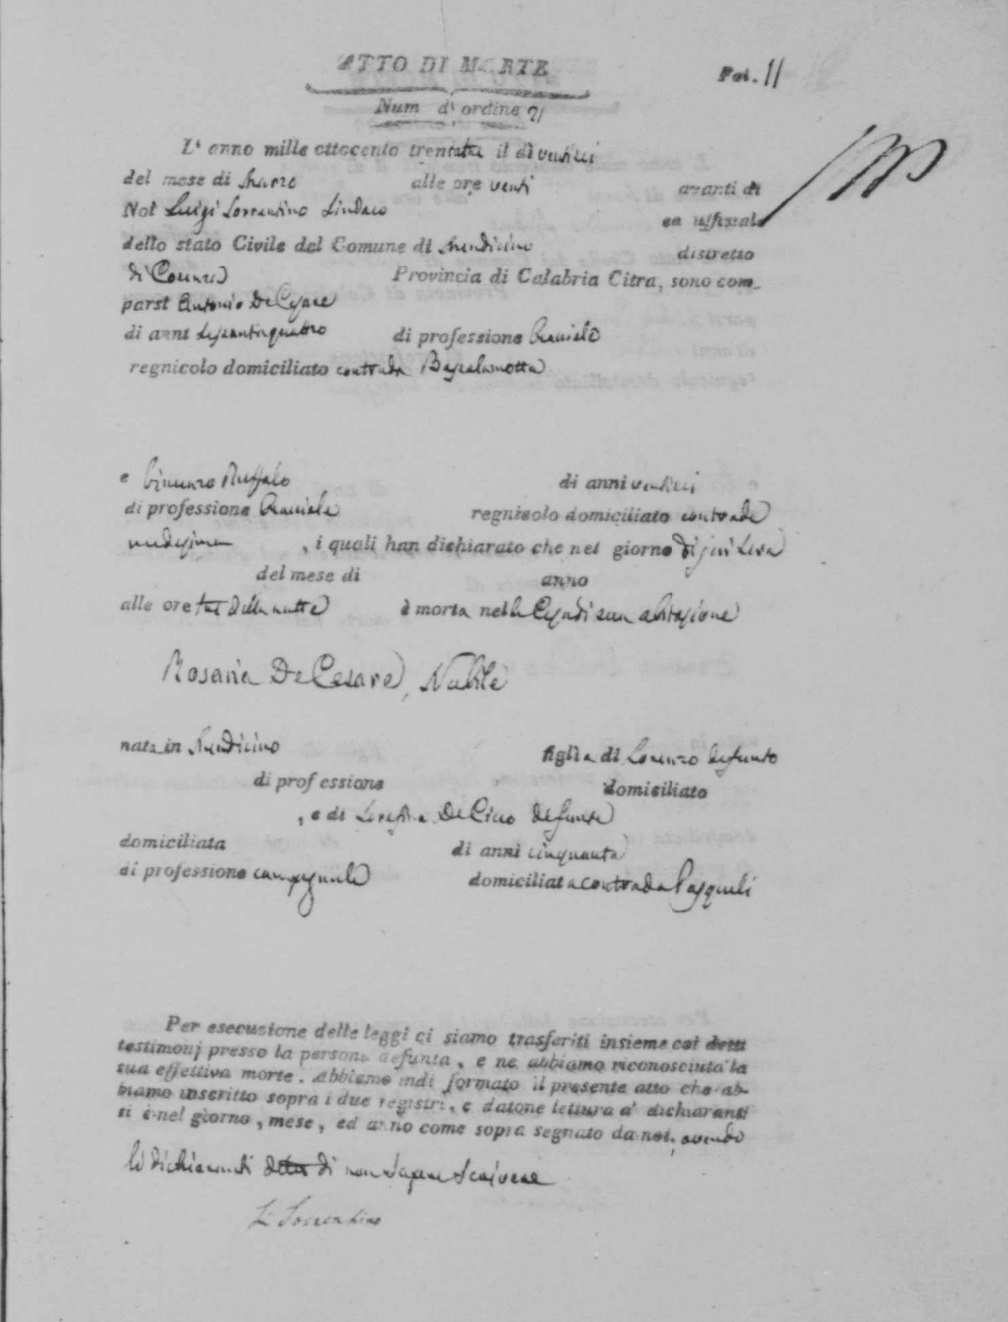 ATTO DI MORTE
Fol. 11
Num d'ordine 21
L'anno mille ottocento trentatre il dì ventisei
del mese di Marzo alle ore venti avanti di
Noi Luigi Sorrentino Sindaco ed uffiziale
dello stato Civile del Comune di Mendicino distretto
di Cosenza Provincia di Calabria Citra, sono com-
parsi Antonio De Cesare
di anni sessantaquattro di professione Bracciale
regnicolo domiciliato contrada
e Vincenzo Ruffolo di anni
di professione Bracciale regnicolo domiciliato contrada
medesima, i quali han dichiarato che nel giorno di jeri sera
del mese di anno
alle ore tre della notte è morta nella Casa di sua abitazione
Rosaria De Cesare, Nubile
nata in Mendicino figlia di Lorenzo defunto
di professione domiciliato
, e di Serafina De Cicco defunta
domiciliata di anni cinquanta
di professione campagnola domiciliata contrada Pasquali
Per esecuzione delle leggi ci siamo trasferiti insieme coi detti
testimonj presso la persona defunta, e ne abbiamo riconosciuta la
sua effettiva morte. Abbiamo indi formato il presente atto che ab-
biamo inscritto sopra i due registri, e datone lettura a' dichiaranti
si è nel giorno, mese, ed anno come sopra segnato da noi, avendo
li dichiaranti detto di non sapere scrivere
L. Sorrentino